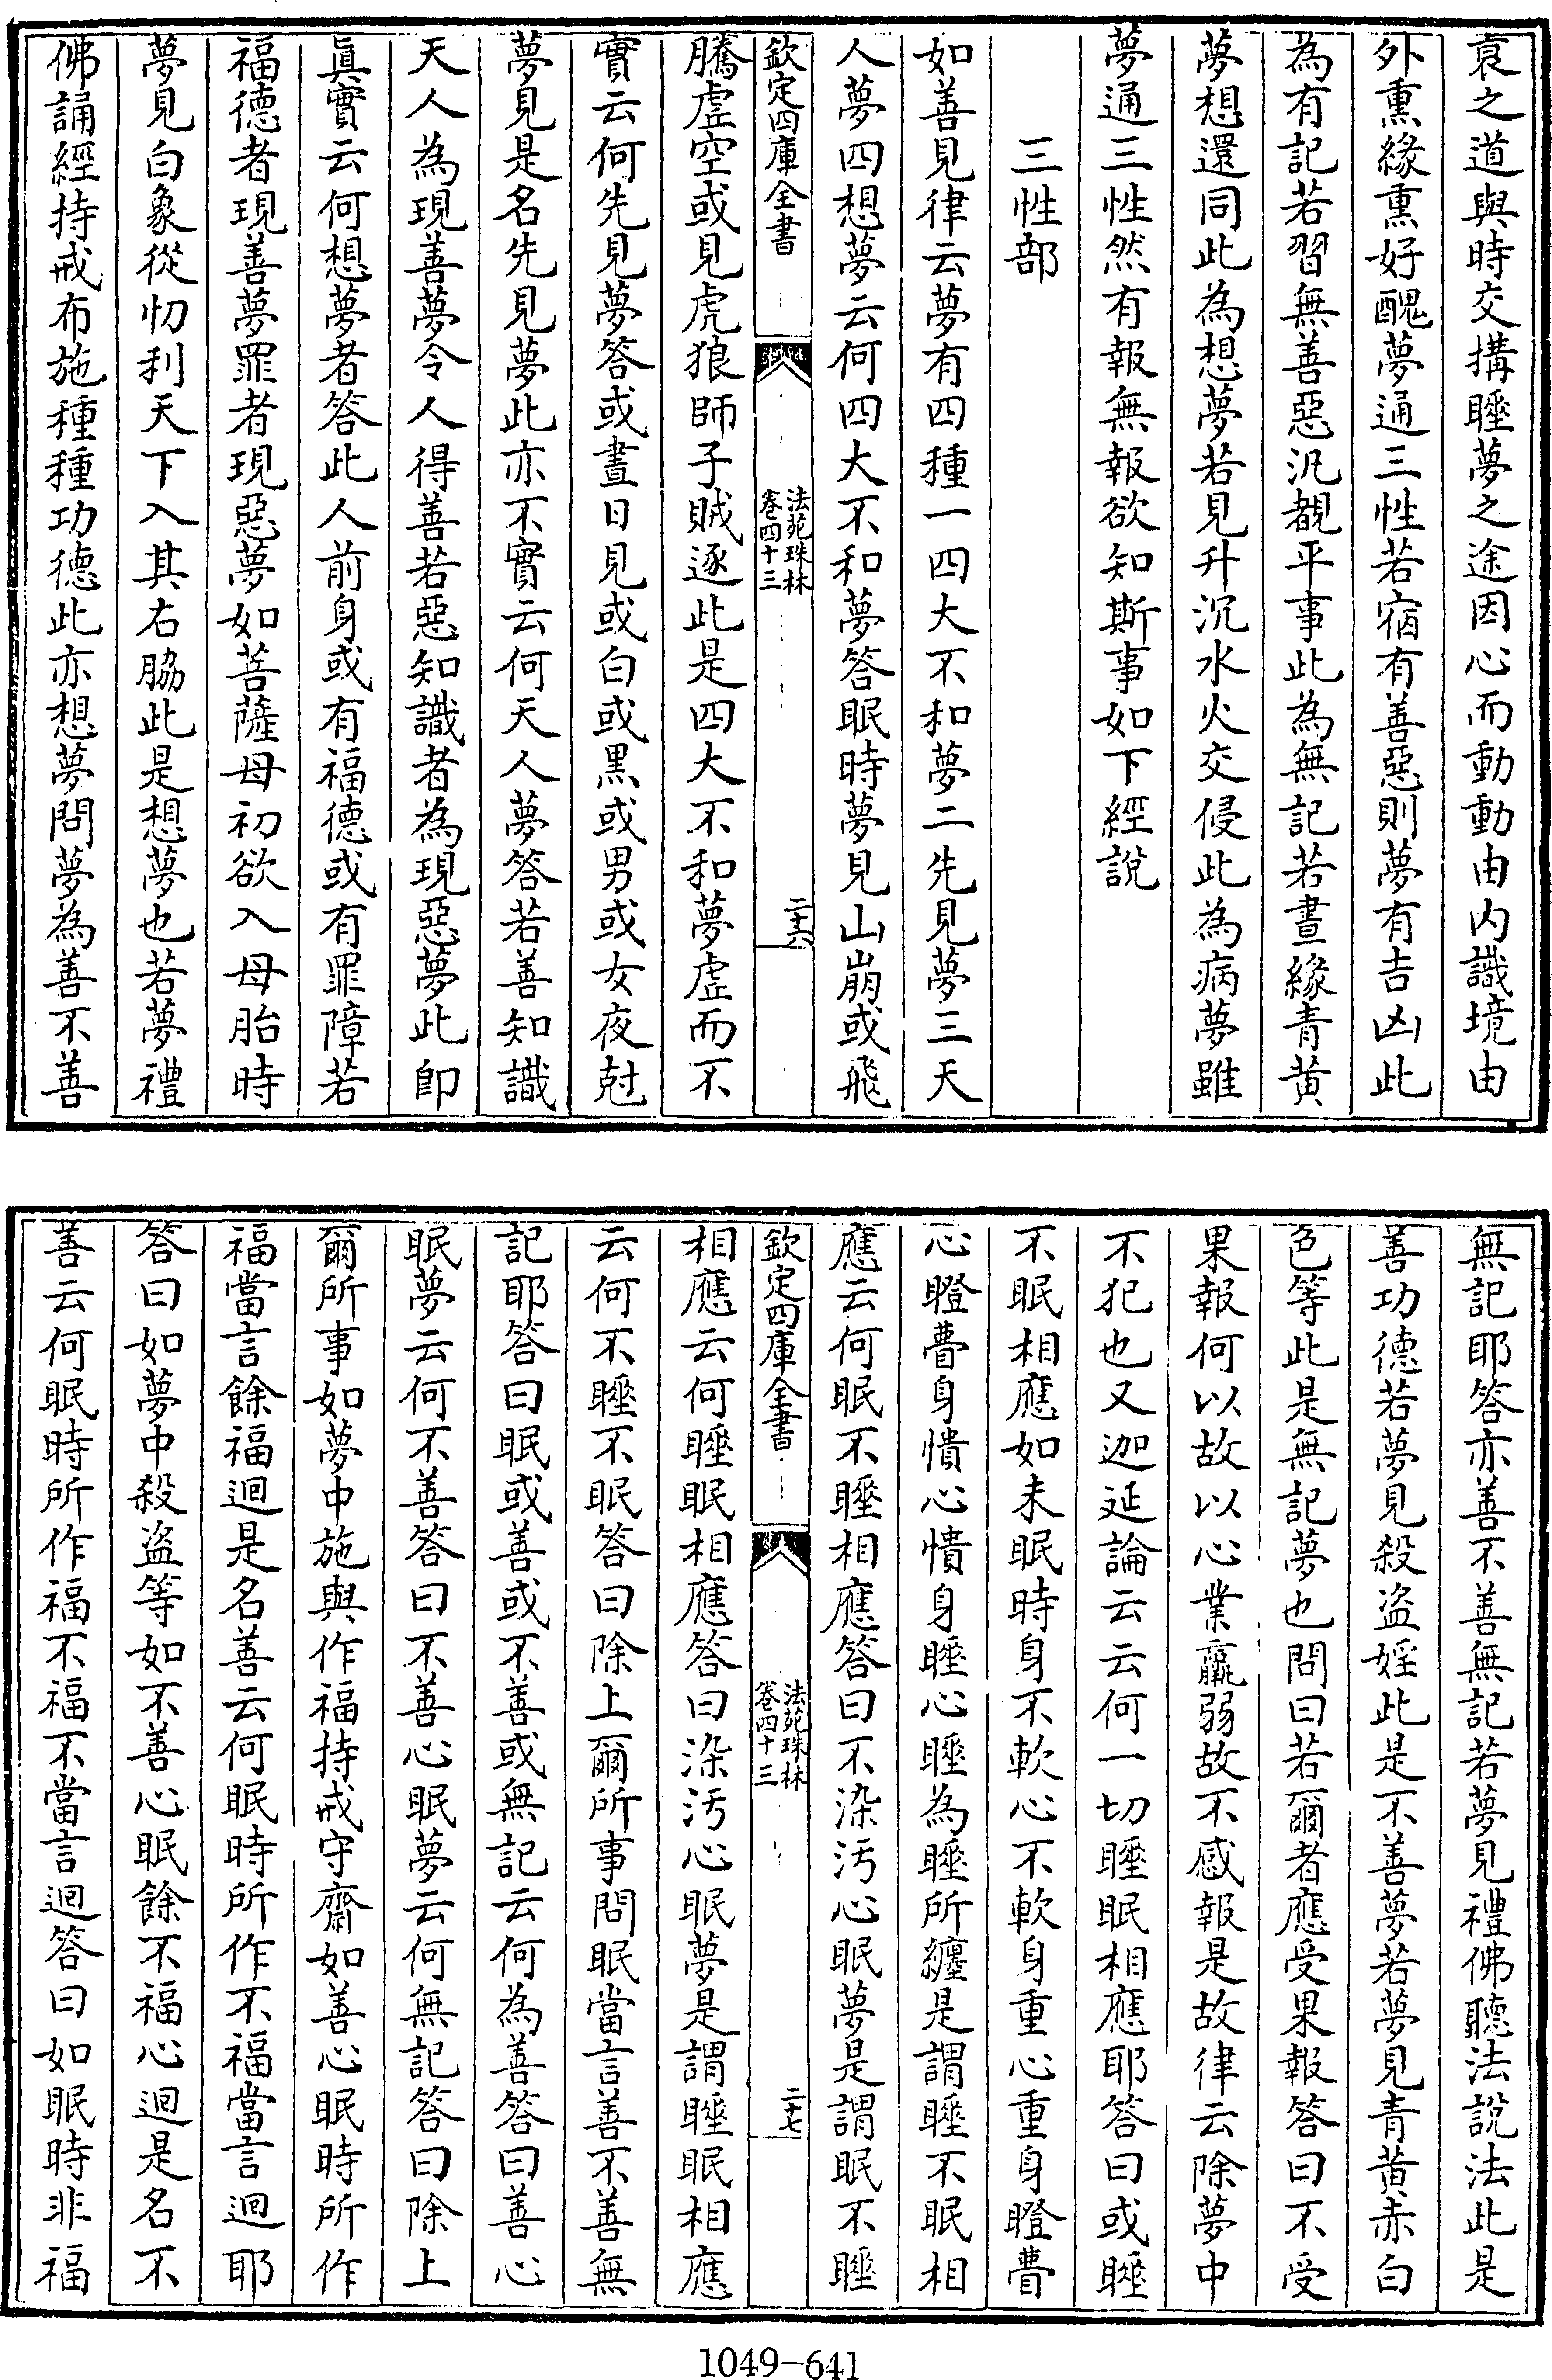 裒之道與時交搆睡夢之途因心而動動由内識境由
外熏緣熏好醜夢通三性若宿有善惡則夢有吉凶此
為有記若習無善惡汎覩平事此為無記若晝緣青黄
夢想還同此為想夢若見升沉水火交侵此為病夢雖
夢通三性然有報無報欲知斯事如下經說
三性部
如善見律云夢有四種一四大不和夢二先見夢三天
人夢四想夢云何四大不和夢答眠時夢見山崩或飛
欽定四庫全書
法苑珠林
卷四十三
二十六
騰虚空或見虎狼師子賊逐此是四大不和夢虚而不
實云何先見夢答或晝日見或白或黒或男或女夜尅
夢見是名先見夢此亦不實云何天人夢答若善知識
天人為現善夢令人得善若惡知識者為現惡夢此即
眞實云何想夢者答此人前身或有福德或有罪障若
福德者現善夢罪者現惡夢如菩薩母初欲入母胎時
夢見白象從忉利天下入其右脇此是想夢也若夢禮
佛誦經持戒布施種種功德此亦想夢問夢為善不善
無記耶答亦善不善無記若夢見禮佛聽法說法此是
善功德若夢見殺盗婬此是不善夢若夢見青黄赤白
色等此是無記夢也問曰若爾者應受果報答曰不受
果報何以故以心業羸弱故不感報是故律云除夢中
不犯也又迦延論云云何一切睡眠相應耶答曰或睡
不眠相應如未眠時身不軟心不軟身重心重身瞪瞢
心瞪瞢身憒心憒身睡心睡為睡所纏是謂睡不眠相
應云何眠不睡相應答曰不染汚心眠夢是謂眠不睡
欽定四庫全書
法苑珠林
卷四十三
二十七
相應云何睡眠相應答曰染汚心眠夢是謂睡眠相應
云何不睡不眠答曰除上爾所事問眠當言善不善無
記耶答曰眠或善或不善或無記云何為善答曰善心
眠夢云何不善答曰不善心眠夢云何無記答曰除上
爾所事如夢中施與作福持戒守齋如善心眠時所作
福當言餘福迴是名善云何眠時所作不福當言迴耶
答曰如夢中殺盗等如不善心眠餘不福心迴是名不
善云何眠時所作福不福不當言迴答曰如眠時非福
1049-641